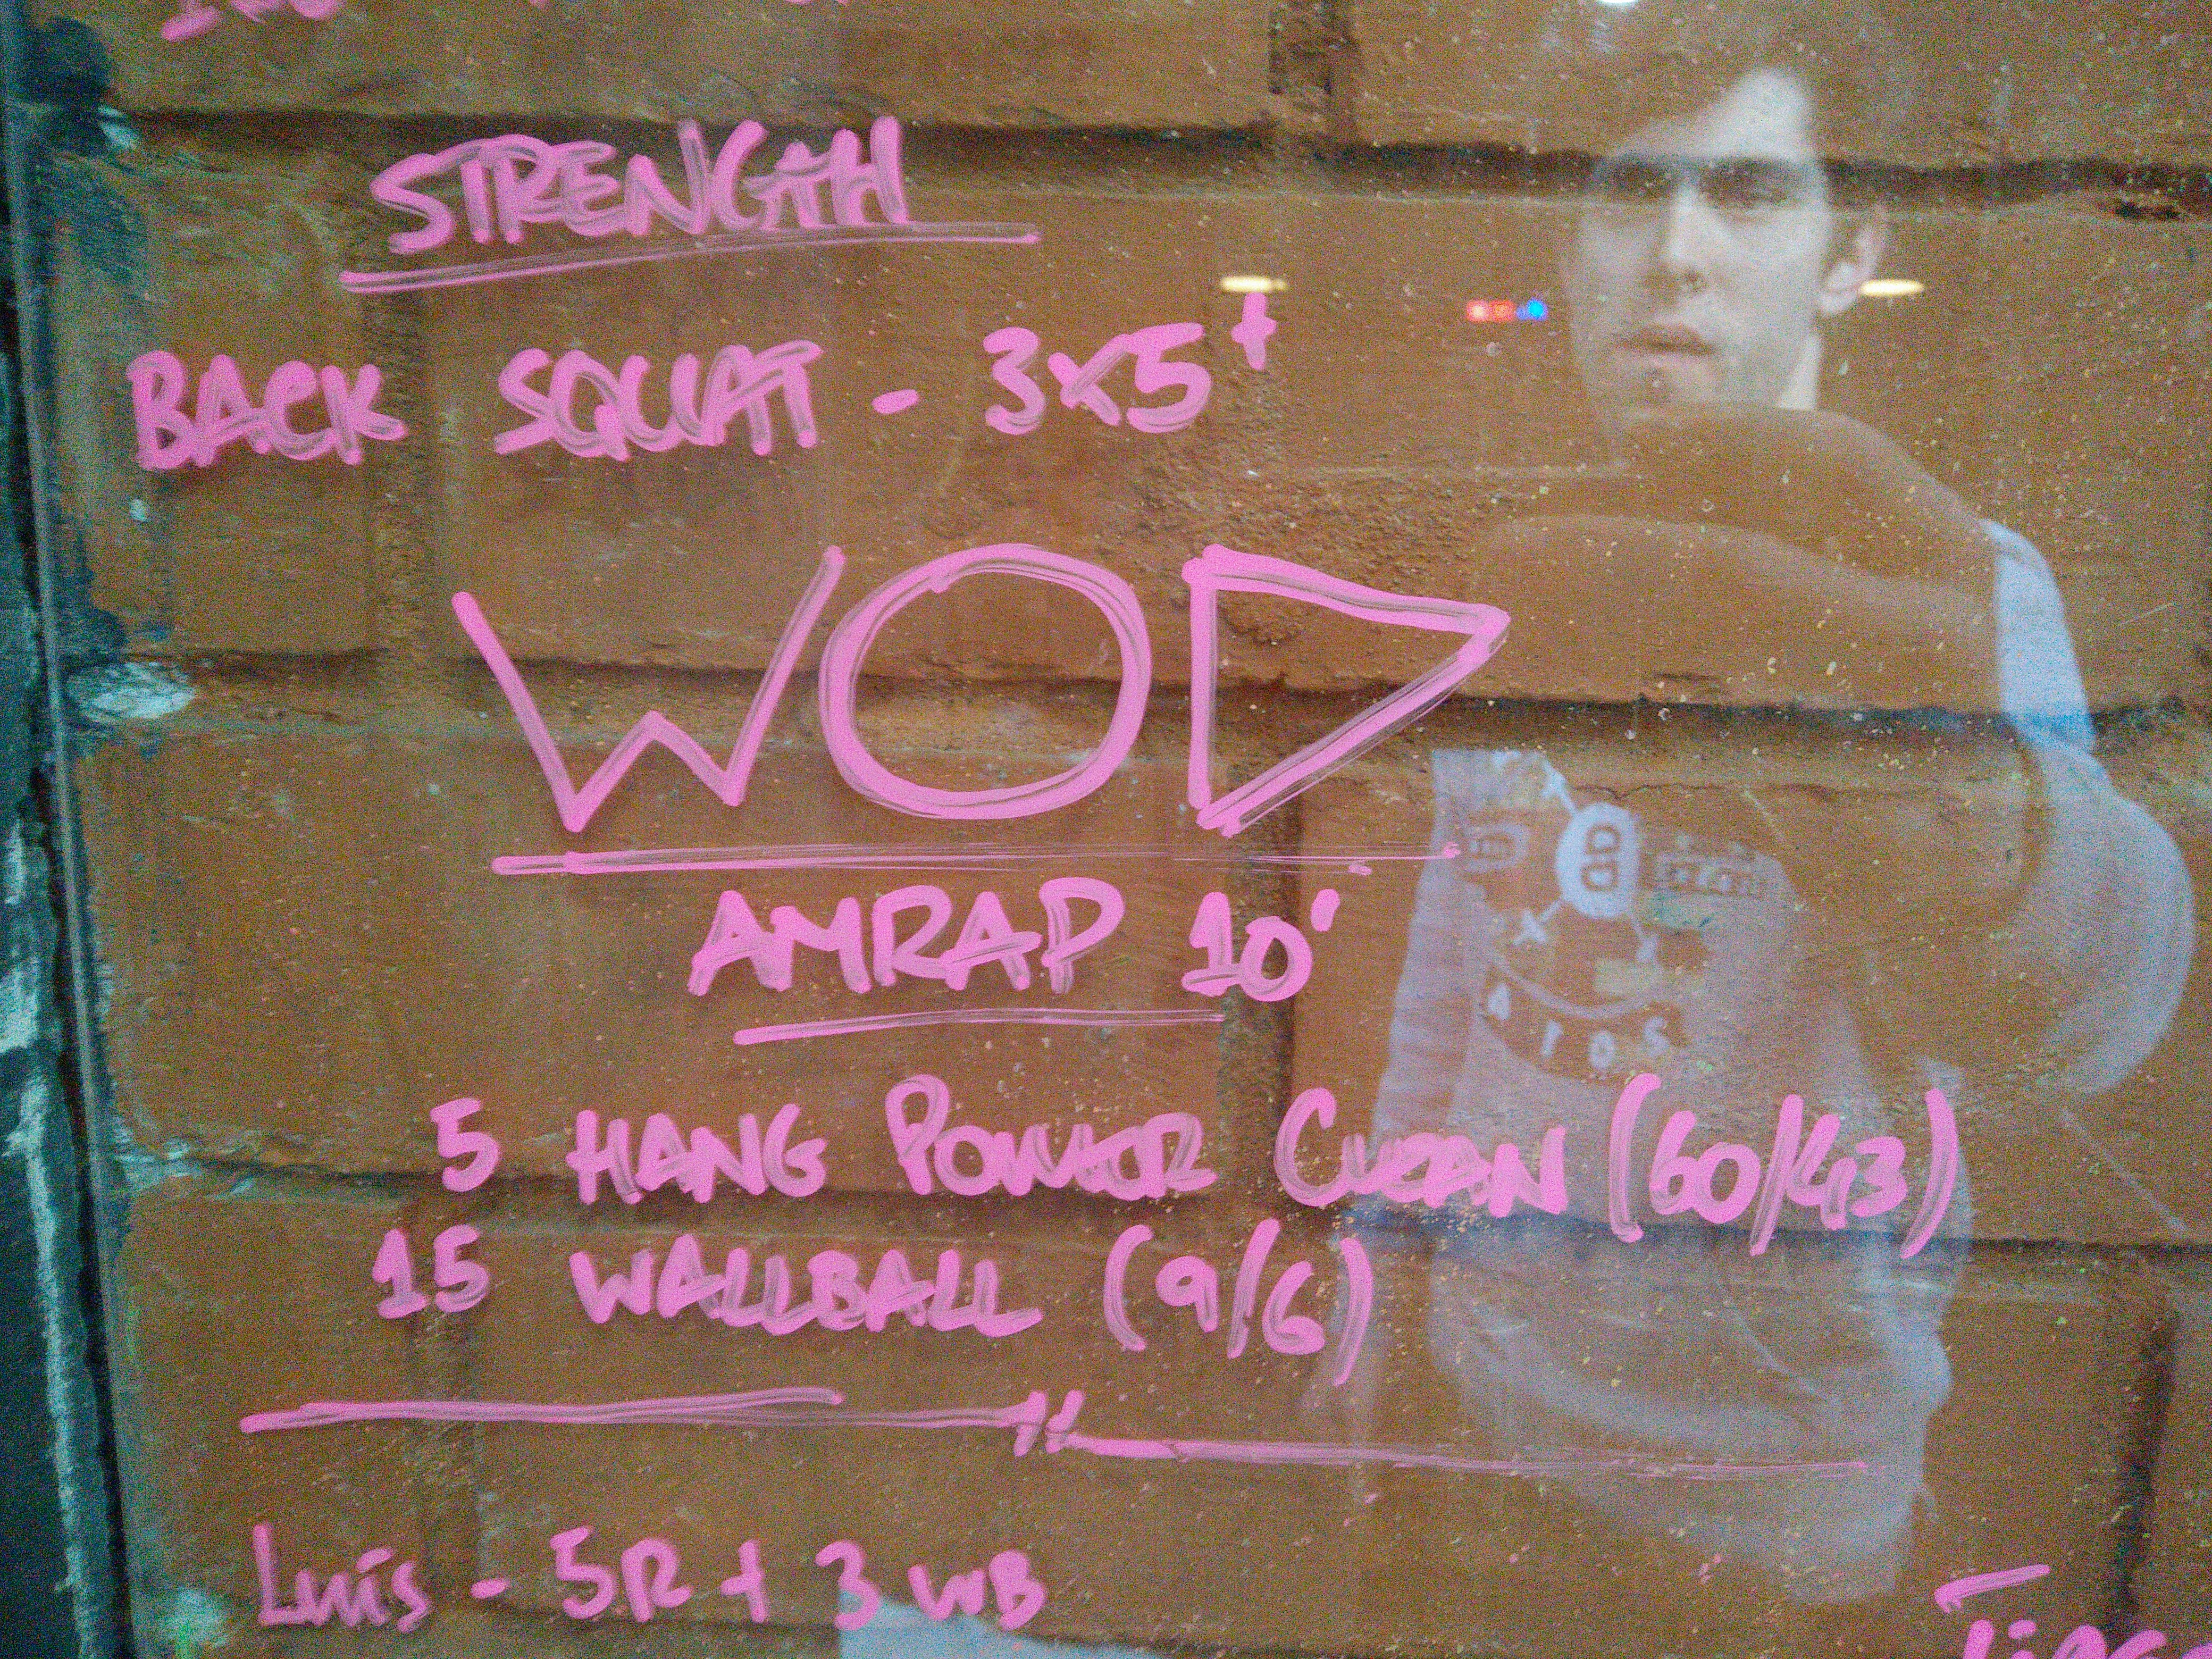 STRENGTH
BACK SQUAT - 3x5+
WOD
AMRAP 10'
5 HANG POWER CLEAN (60/43)
15 WALLBALL (9/6)
Luís - 5R + 3 WB